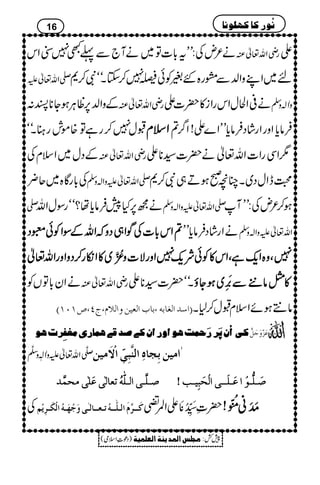 نُور کا کھلونا
16
علی رضی اللہ تعالیٰ عنہ نے عرض کی: ’’یہ بات تو میں نے آج سے پہلے کبھی نہیں سنی اس
لئے میں اپنے والد سے مشورہ کئے بغیر کوئی فیصلہ نہیں کرسکتا۔‘‘ نبیِ کریم صلی اللہ تعالیٰ علیہ
واٰلہ وسلم نے فی الحال اس راز کا حضرت علی رضی اللہ تعالیٰ عنہ کے والد پر ظاہر ہوجانا پسند نہ
فرمایا اور ارشاد فرمایا ’’اے علی! اگر تم اسلام قبول نہیں کر رہے تو خاموش رہنا۔‘‘
مگر اسی رات اللہ تعالیٰ نے حضرت سیدنا علی رضی اللہ تعالیٰ عنہ کے دل میں اسلام کی
محبت ڈال دی۔ چنانچہ صبح ہوتے ہی نبی کریم صلی اللہ تعالیٰ علیہ واٰلہ وسلم کی بارگاہ میں حاضر
ہو کر عرض کی: ’’آپ صلی اللہ تعالیٰ علیہ واٰلہ وسلم نے مجھ پر کیا پیش فرمایا تھا؟‘‘ رسول اللہ صلی
اللہ تعالیٰ علیہ واٰلہ وسلم نے ارشاد فرمایا: ’’تم اس بات کی گواہی دو کہ اللہ کے سوا کوئی معبود
نہیں، وہ ایک ہے، اس کا کوئی شریک نہیں اور لات و عُزّٰی کا انکار کردو اور اللہ تعالیٰ
کا مثل ماننے سے بَری ہوجاؤ۔‘‘ حضرت سیدنا علی رضی اللہ تعالیٰ عنہ نے ان باتوں کو
مانتے ہوئے اسلام قبول کرلیا۔ (اسد الغابہ، باب العین واللام، ج٤، ص١٠١)
اللہ عَزَّوَجَلَّ کی اُن پَر رَحمت ہو اور ان کے صدقے ہماری مغفِرت ہو
اٰمین بِجاہِ النَّبِیِّ الْاَمین صلی اللہ تعالیٰ علیہ واٰلہ وسلم
صَلُّوْا عَلَی الْحَبِیب ! صلَّی اللہُ تعالٰی عَلٰی محمَّد
مَدَنی مُنّو! حضرتِ سَیِّدُنا علی المرتضیٰ کَرَّمَ اللہُ تعالٰی وَجْہَہُ الْکَرِیْم کی
پیش کش: مجلس المدینۃ العلمیۃ (دعوتِ اسلامی)